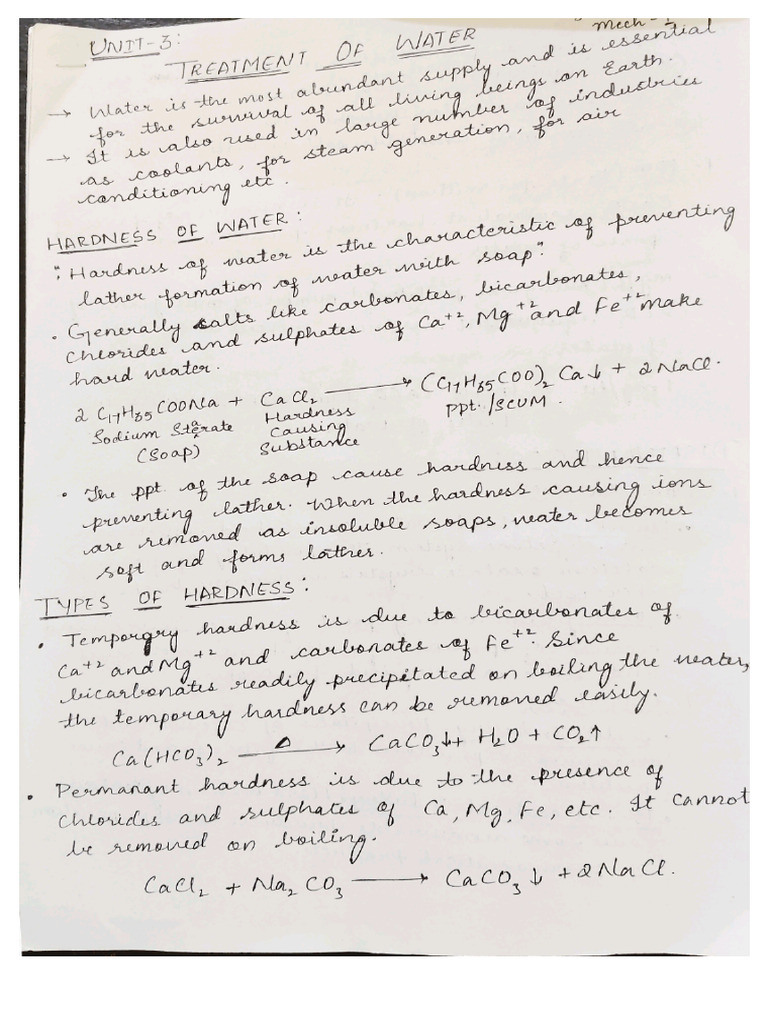 Mech-
UNIT-3:
TREATMENT OF WATER
→ Water is the most abundant supply and is essential
for the survival of all living beings on Earth.
→ It is also used in large number of industries
as coolants, for steam generation, for air
conditioning etc.
HARDNESS OF WATER:
"Hardness of water is the characteristic of preventing
lather formation of water with soap".
• Generally salts like carbonates, bicarbonates,
chlorides and sulphates of Ca⁺², Mg⁺² and Fe⁺² make
hard water.
2 C₁₇H₃₅COONa + CaCl₂ → (C₁₇H₃₅COO)₂ Ca↓ + 2NaCl.
Sodium Sterate Hardness ppt./SCUM.
(Soap) Causing
Substance
• The ppt. of the soap cause hardness and hence
preventing lather. When the hardness causing ions
are removed as insoluble soaps, water becomes
soft and forms lather.
TYPES OF HARDNESS:
• Temporary hardness is due to bicarbonates of
Ca⁺² and Mg⁺² and carbonates of Fe⁺². Since
bicarbonates readily precipitated on boiling the water,
the temporary hardness can be removed easily.
Ca(HCO₃)₂ —Δ→ CaCO₃↓+ H₂O + CO₂↑
• Permanant hardness is due to the presence of
chlorides and sulphates of Ca, Mg, Fe, etc. It cannot
be removed on boiling.
CaCl₂ + Na₂CO₃ → CaCO₃↓ + 2NaCl.